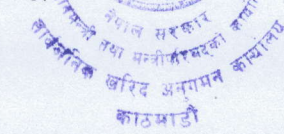 नेपाल सरकार
प्रधानमन्त्री तथा मन्त्रीपरिषद्को कार्यालय
सार्वजनिक खरिद अनुगमन कार्यालय
काठमाडौं